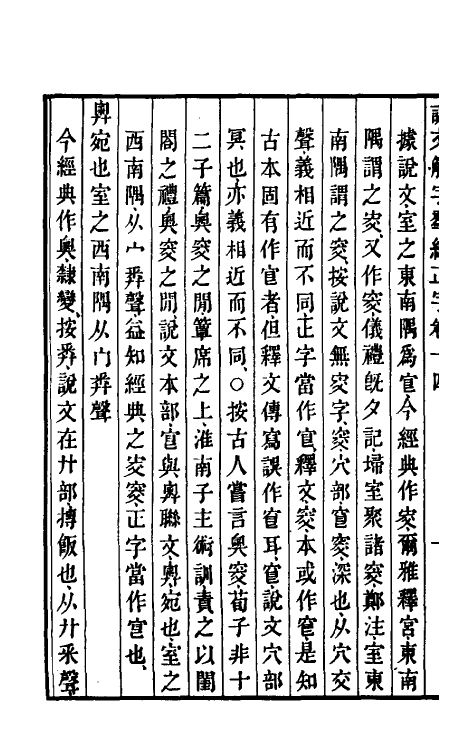 說文解字羣經正字卷十四
據說文室之東南隅為㝔今經典作㝔爾雅釋宮東南
隅謂之㝔又作窔儀禮旣夕記埽室聚諸窔鄭注室東
南隅謂之窔按說文無㝔字窔穴部窅窔深也从穴交
聲義相近而不同正字當作㝔釋文窔本或作窅是知
古本固有作㝔者但釋文傳寫誤作窅耳窅說文穴部
冥也亦義相近而不同○按古人嘗言奧窔荀子非十
二子篇奧窔之閒簟席之上淮南子主術訓責之以閨
閤之禮奧窔之閒說文本部㝔與㝔聯文㝔宛也室之
西南隅从宀𢍏聲益知經典之㝔窔正字當作㝔也
㝔宛也室之西南隅从宀𢍏聲
今經典作奧隸變按𢍏說文在廾部摶飯也从廾釆聲